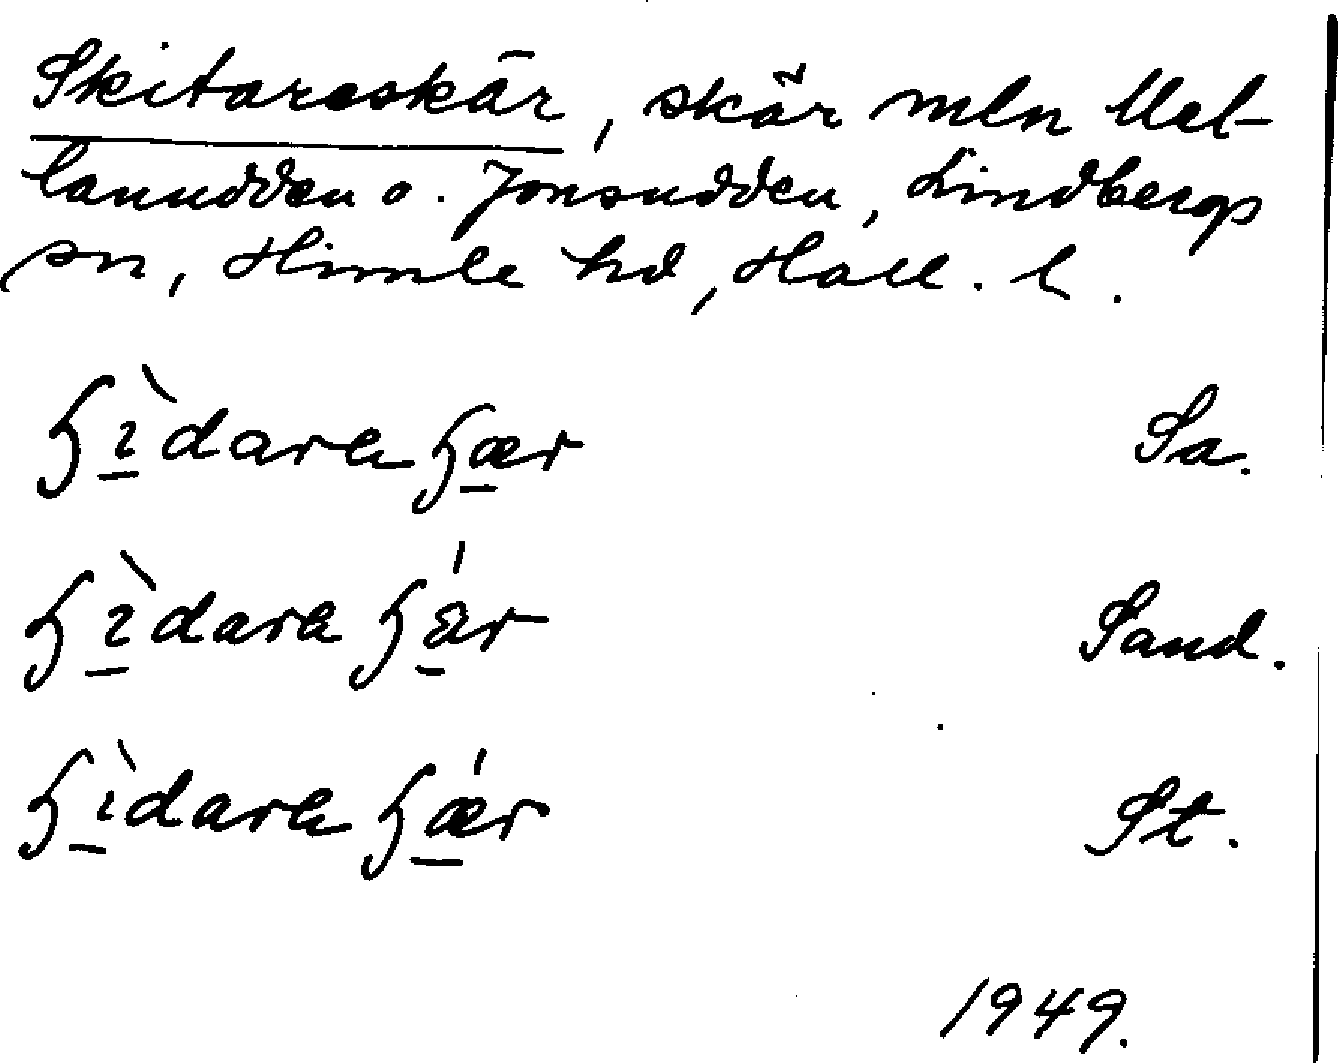 Skitareskär, skär mln Mel-
lanudden o. Jonsudden, Lindbergs
sn, Himle hd, Hall. l.
ꜧì̠daraꜧæ̠r Sa.
ꜧì̠daraꜧä̠́r Sand.
ꜧì̠daraꜧǽ̠r St.
1949.